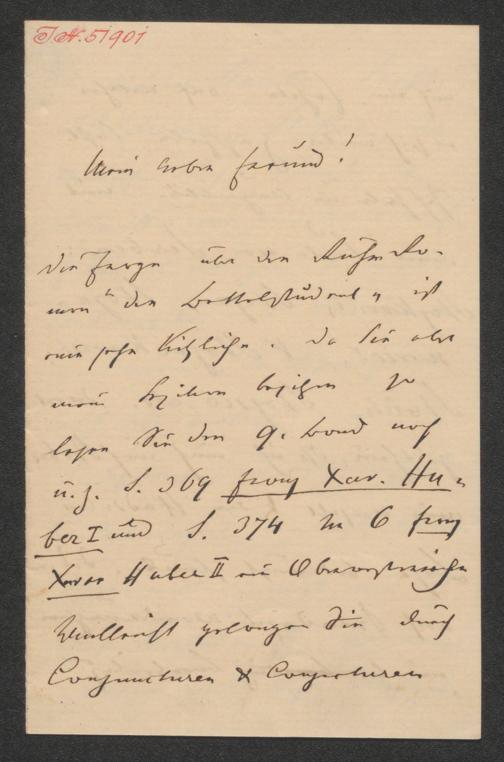 I.N. 51901
Mein lieber Freund!
die Frage über den Ruhm Ro-
man "den Bettelstudent" ist
eine sehr kitzliche. Da Sie aber
mein Lexikon besitzen so
lesen Sie den 9. Band nach
u. z. S. 369 Franz Xav. Hu-
ber I und S. 374 N 6 Franz
Xaver Huber II ein Oberösterreicher
Vielleicht gelangen Sie durch
Conjuncturen & Conjecturen